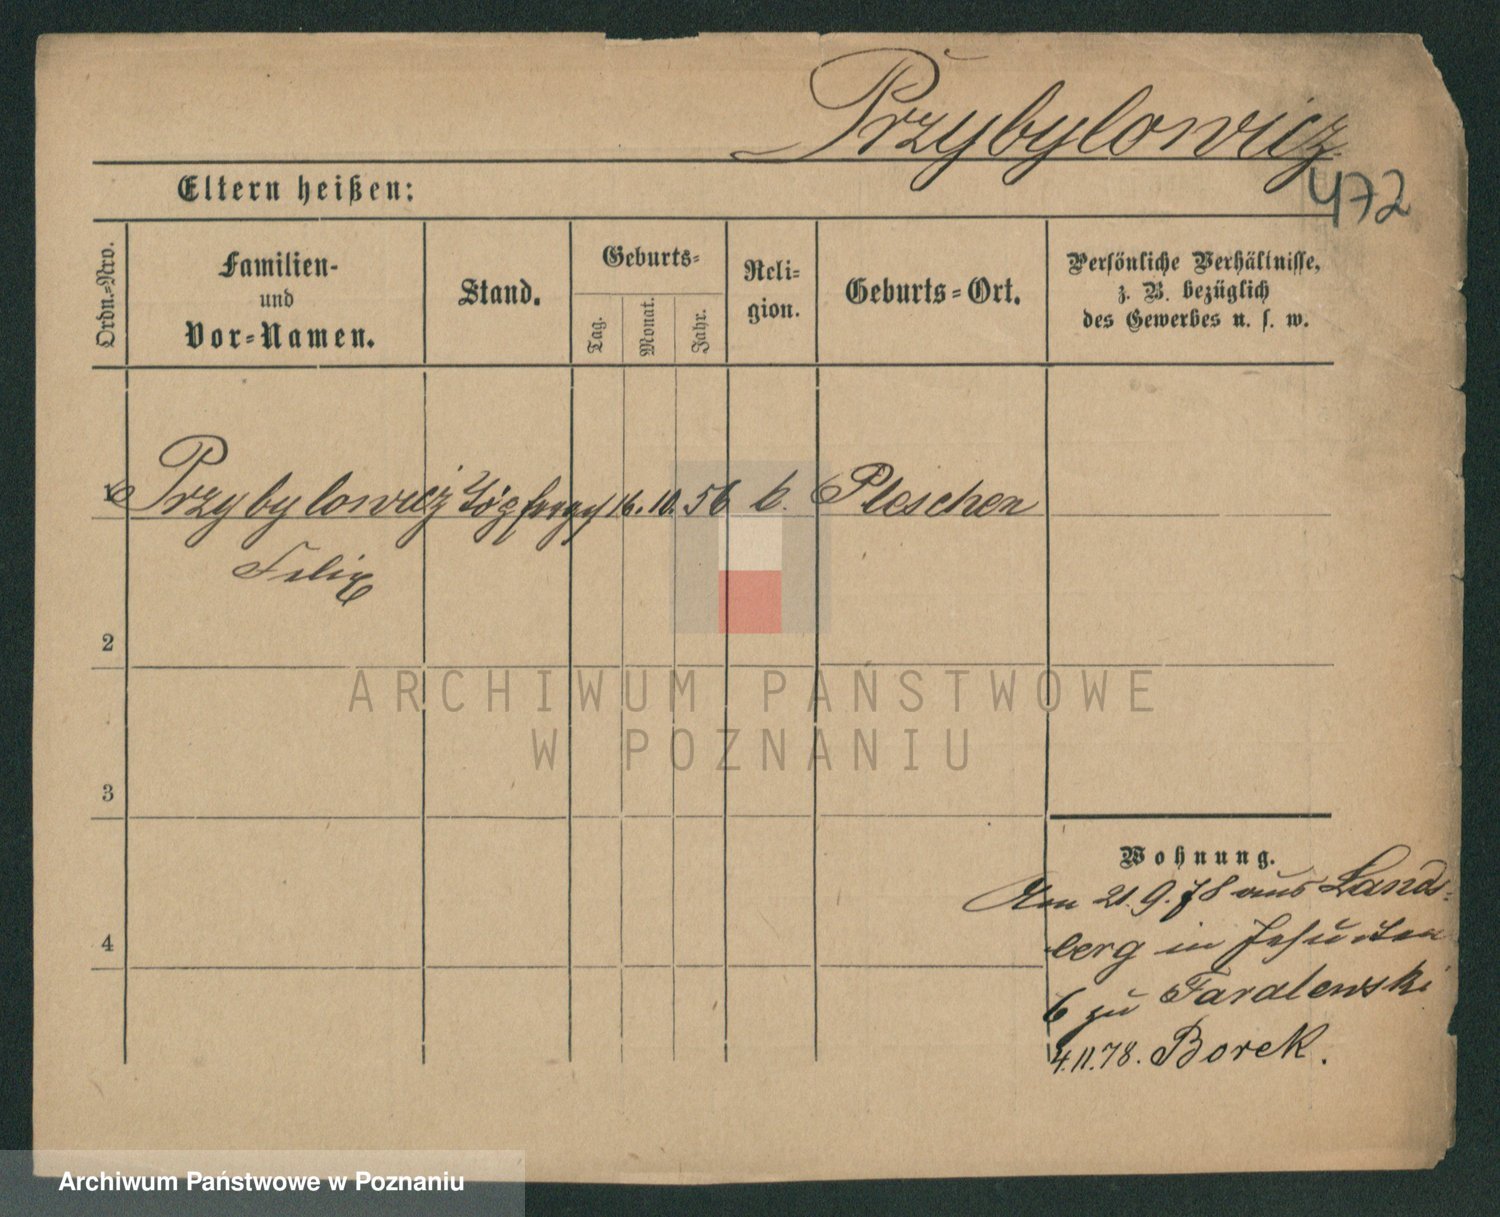 Przybylowicz
472
Eltern heißen:
Ordn.-Nro.
Familien-
und
Vor-Namen.
Stand.
Geburts-
Tag.
Monat.
Jahr.
Reli-
gion.
Geburts-Ort.
Persönliche Verhältnisse,
z. B. bezüglich
des Gewerbes u. s. w.
Przybylowicz 16. 10. 56 k. Pleschen
Felix
2
3
4
Wohnung.
Am 21.9.78 aus Lands-
berg in Jesuiten
6 zu
4.11.78. Borek.
ARCHIWUM PAŃSTWOWE
W POZNANIU
Archiwum Państwowe w Poznaniu